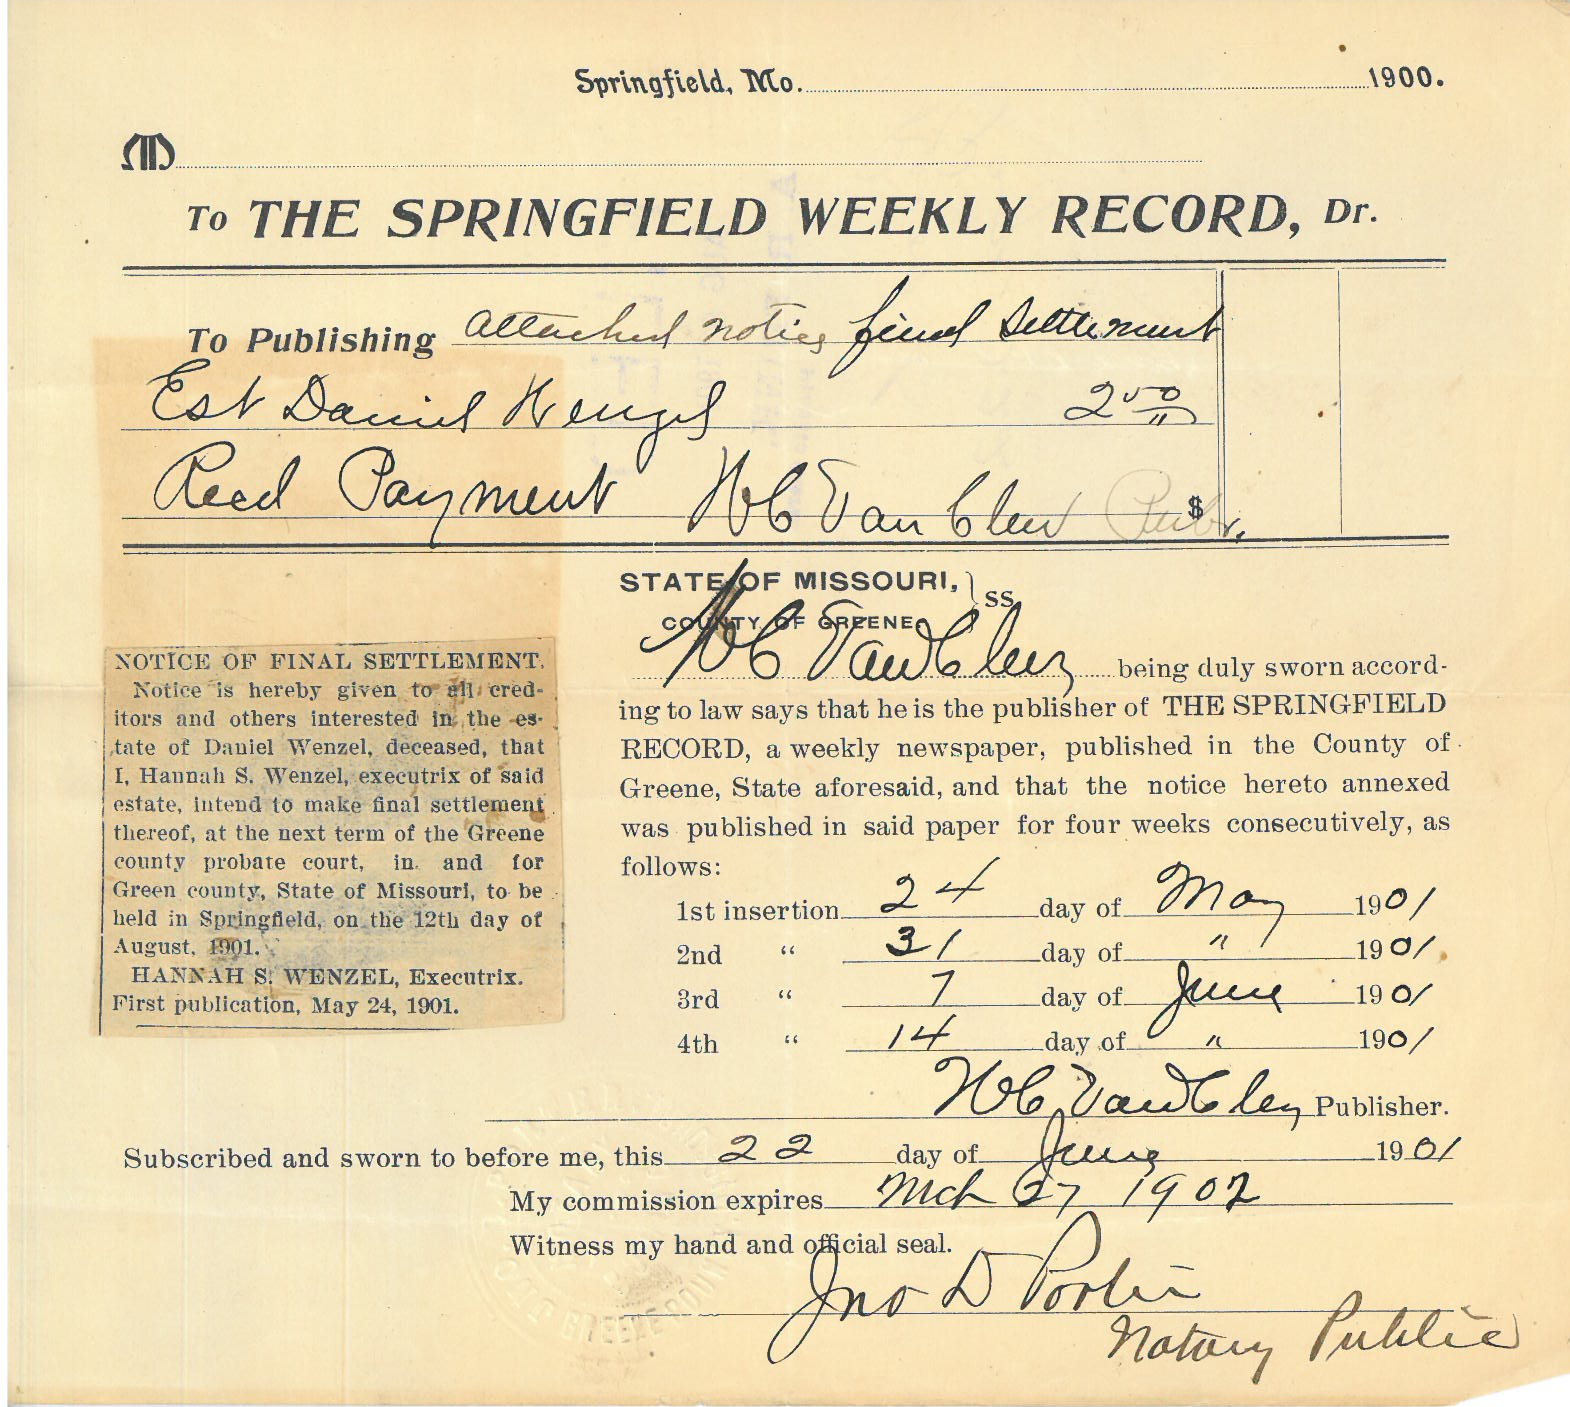 Springfield, Mo. 1900.
M
To THE SPRINGFIELD WEEKLY RECORD, Dr.
To Publishing Attached notice final settlement
Est Daniel Wenzel 2 50
Recd Payment W C Van Cleve Pubr. $
STATE OF MISSOURI, } SS
COUNTY OF GREENE.
W C Van Cleve being duly sworn accord-
ing to law says that he is the publisher of THE SPRINGFIELD
RECORD, a weekly newspaper, published in the County of
Greene, State aforesaid, and that the notice hereto annexed
was published in said paper for four weeks consecutively, as
follows:
1st insertion 24 day of May 1901
2nd " 31 day of " 1901
3rd " 7 day of June 1901
4th " 14 day of " 1901
W C Van Cleve Publisher.
NOTICE OF FINAL SETTLEMENT.
Notice is hereby given to all cred-
itors and others interested in the es-
tate of Daniel Wenzel, deceased, that
I, Hannah S. Wenzel, executrix of said
estate, intend to make final settlement
thereof, at the next term of the Greene
county probate court, in and for
Green county, State of Missouri, to be
held in Springfield, on the 12th day of
August, 1901.
HANNAH S. WENZEL, Executrix.
First publication, May 24, 1901.
Subscribed and sworn to before me, this 22 day of June 1901
My commission expires Mch 27 1902
Witness my hand and official seal.
Jno D Porter
Notary Public